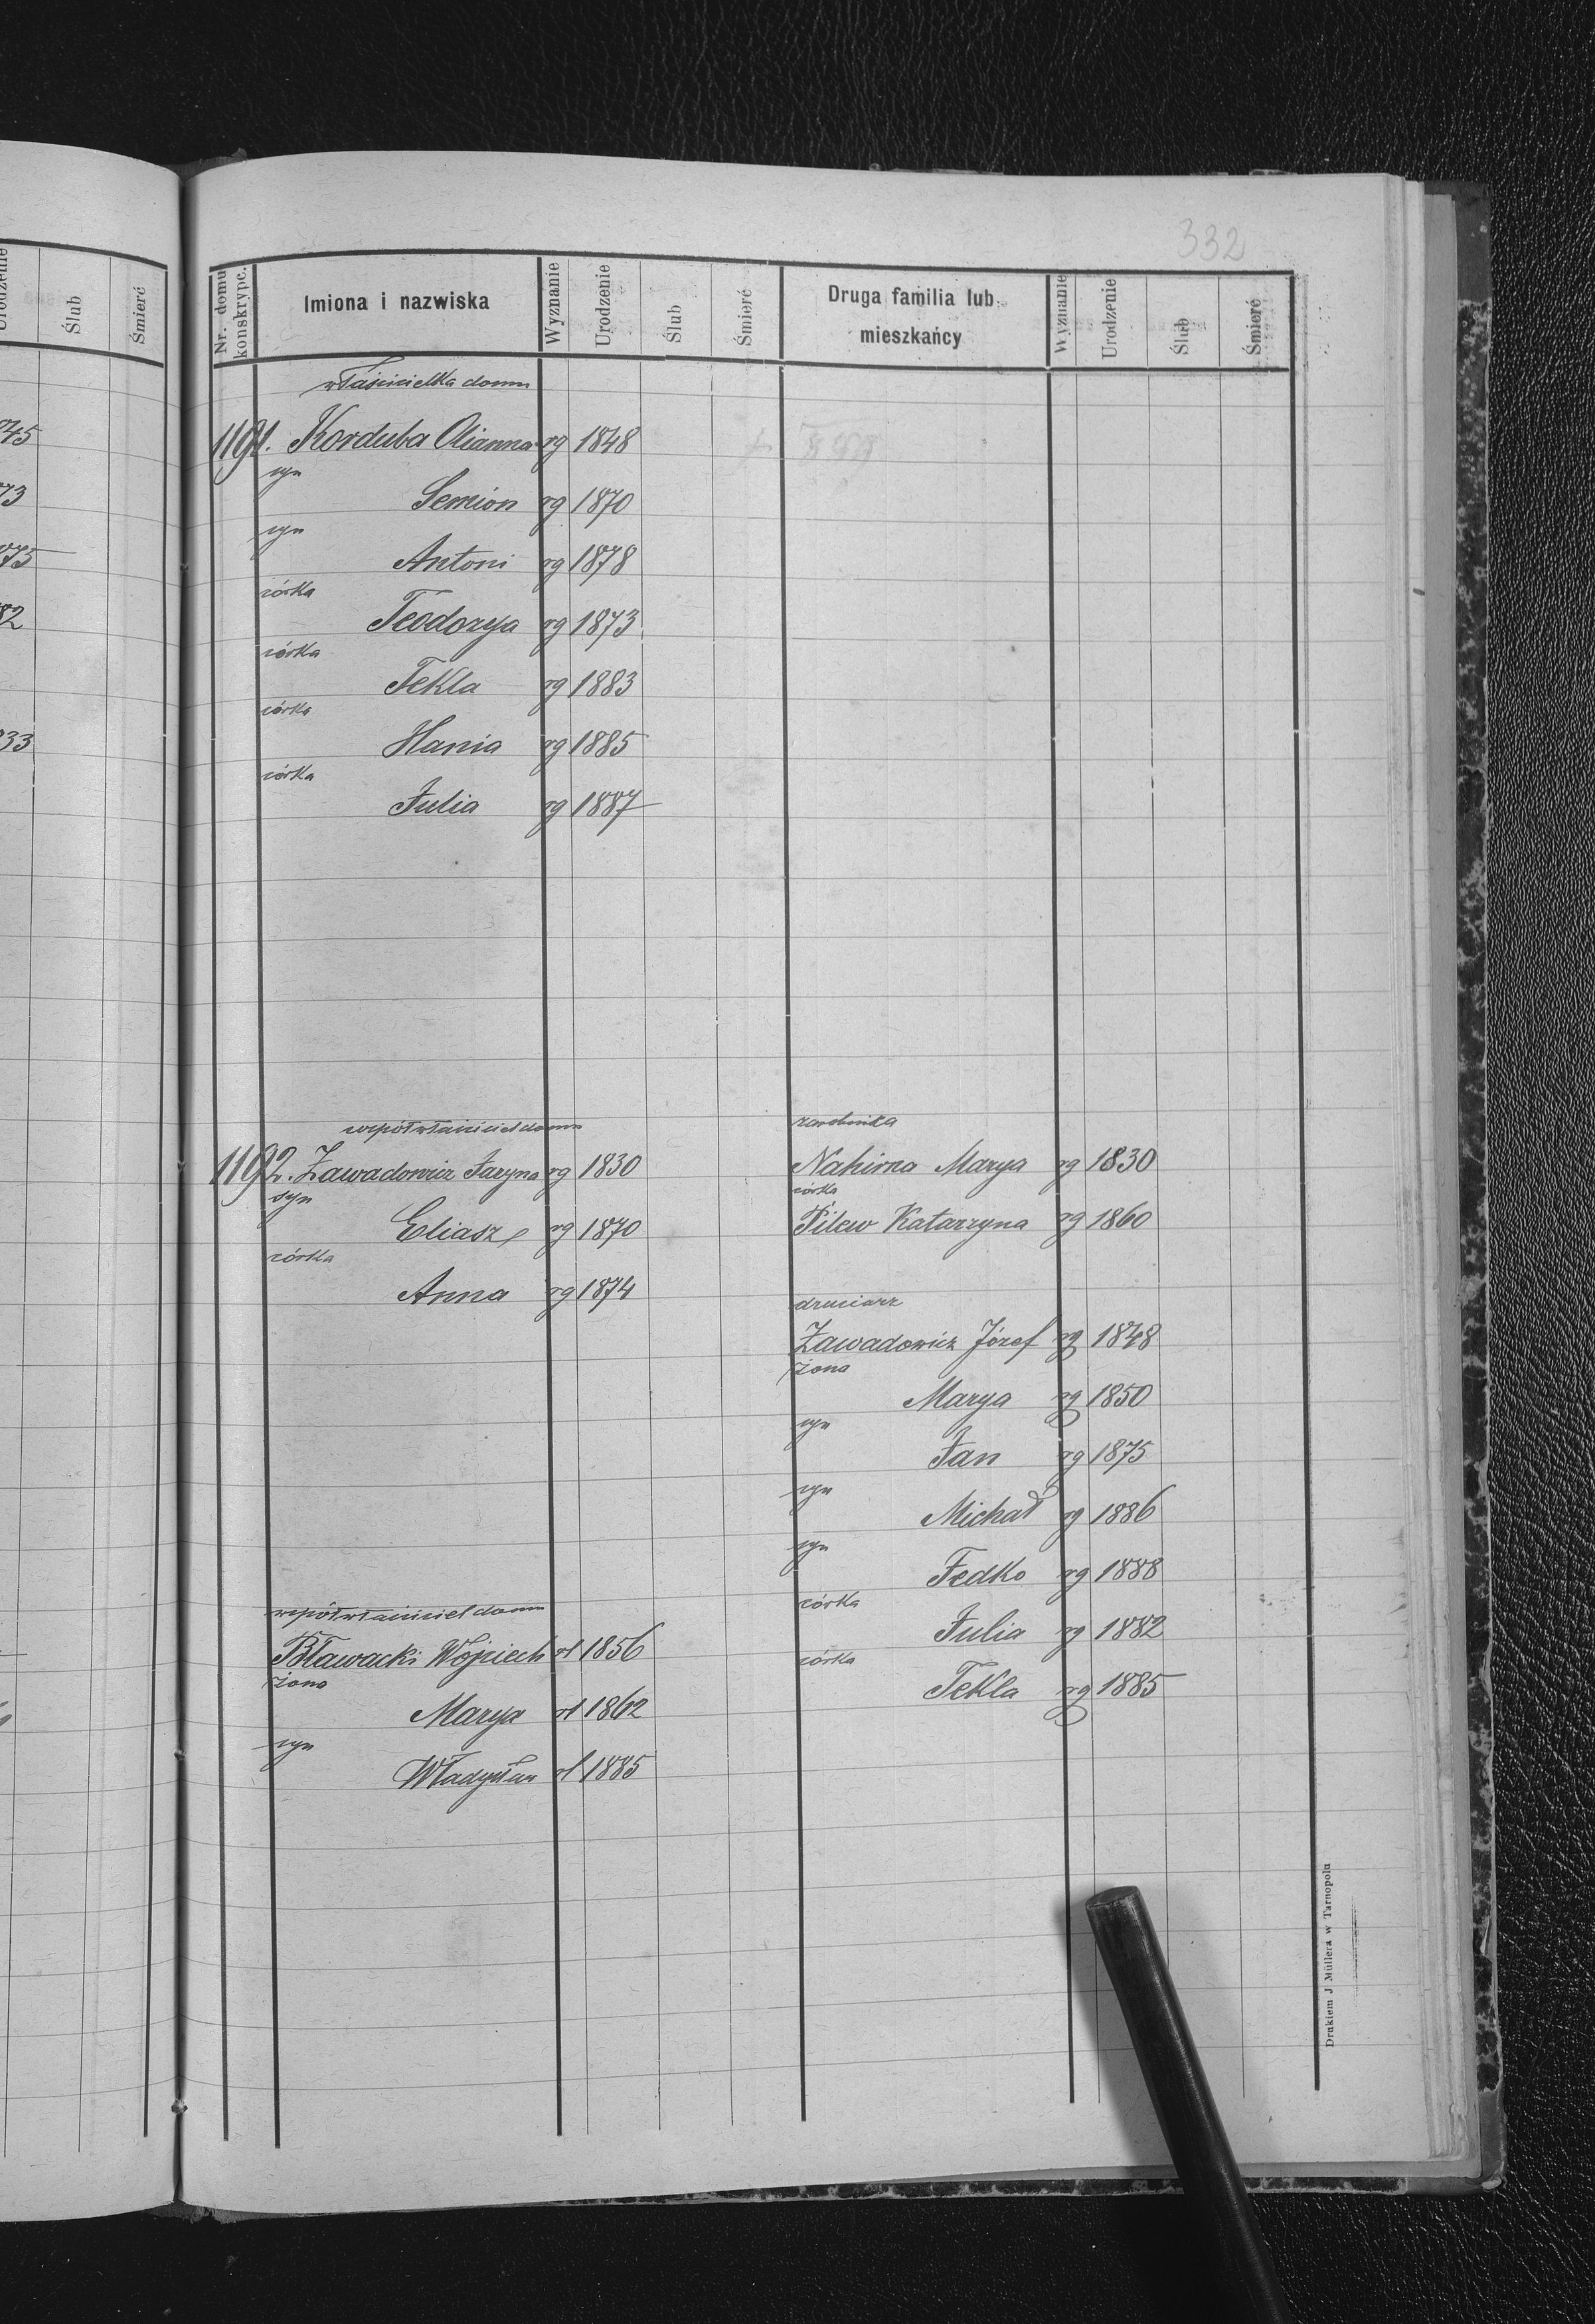 332
Nr. domu konskrypc.
Imiona i nazwiska
Wyznanie
Urodzenie
Ślub
Śmierć
Druga familia lub mieszkańcy
Wyznanie
Urodzenie
Ślub
Śmierć
właścicielka domu
1191. Korduba Olianna rg 1848
syn
Semion rg 1870
syn
Antoni rg 1878
córka
Teodozya rg 1873
córka
Tekla rg 1883
córka
Hania rg 1885
córka
Julia rg 1887
współwłaściciel domu
1192. Zawadowicz Jaryna rg 1830
syn
Eliasz rg 1870
córka
Anna rg 1874
współwłaściciel domu
Bławacki Wojciech rl 1856
żona
Marya rl 1862
syn
Władysław rl 1885
zarobnica
Nahirna Marya rg 1830
córka
Pilew Katarzyna rg 1860
druciarz
Zawadowicz Józef rg 1848
żona
Marya rg 1850
syn
Jan rg 1875
syn
Michał rg 1886
syn
Fedko rg 1888
córka
Julia rg 1882
córka
Tekla rg 1885
Drukiem J Müllera w Tarnopolu
Urodzenie
Ślub
Śmierć
45
73
75
82
33